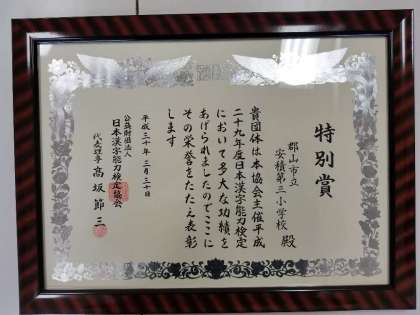 特別賞
郡山市立
安積第三小学校 殿
貴団体は本協会主催平成
二十九年度日本漢字能力検定
において多大な功績を
あげられましたのでここに
その栄誉をたたえ表彰
します
平成三十年三月三十日
公益財団法人
日本漢字能力検定協会
代表理事 高坂節三